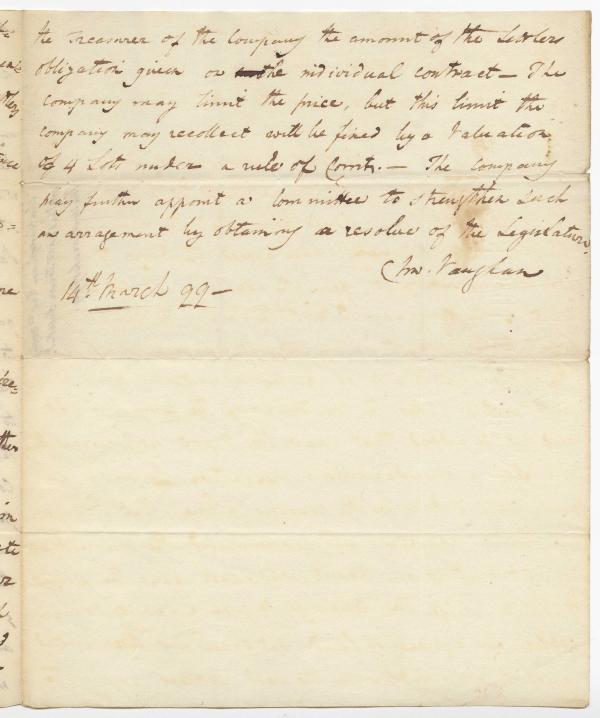 the treasurer of the Company the amount of the Settlers
obligation given on the individual contract — The
company may limit the price, but this limit the
company may recollect will be fixed by a Valuation
of 4 Lots under a rule of Court. — The company
may further appoint a Committee to strengthen such
an arragement by obtaining a resolve of the Legislature.
Vaughan
14th March 99 —